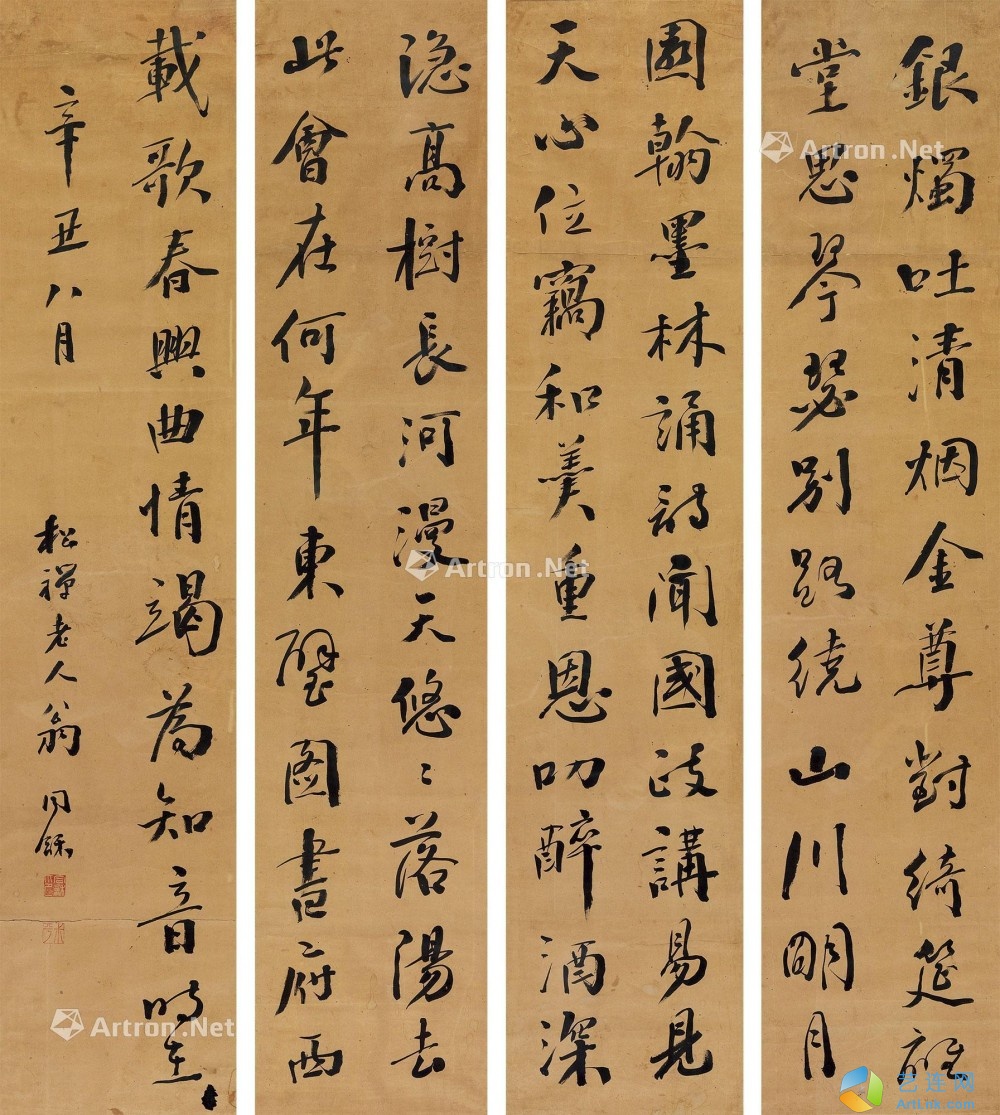 銀燭吐清烟金尊對綺筵離
堂思琴瑟別路繞山川明月
隱高樹長河漫天悠悠落陽去
此會在何年東壁圖書府西
園翰墨林誦詩聞國政講易見
天心位竊和羹重恩叨醉酒深
載歌春興曲情竭為知音時在
辛丑八月
松禪老人翁同龢
Artron.Net
Artron.Net
Artron.Net
Artron.Net
艺连网
ArtLnk.Com